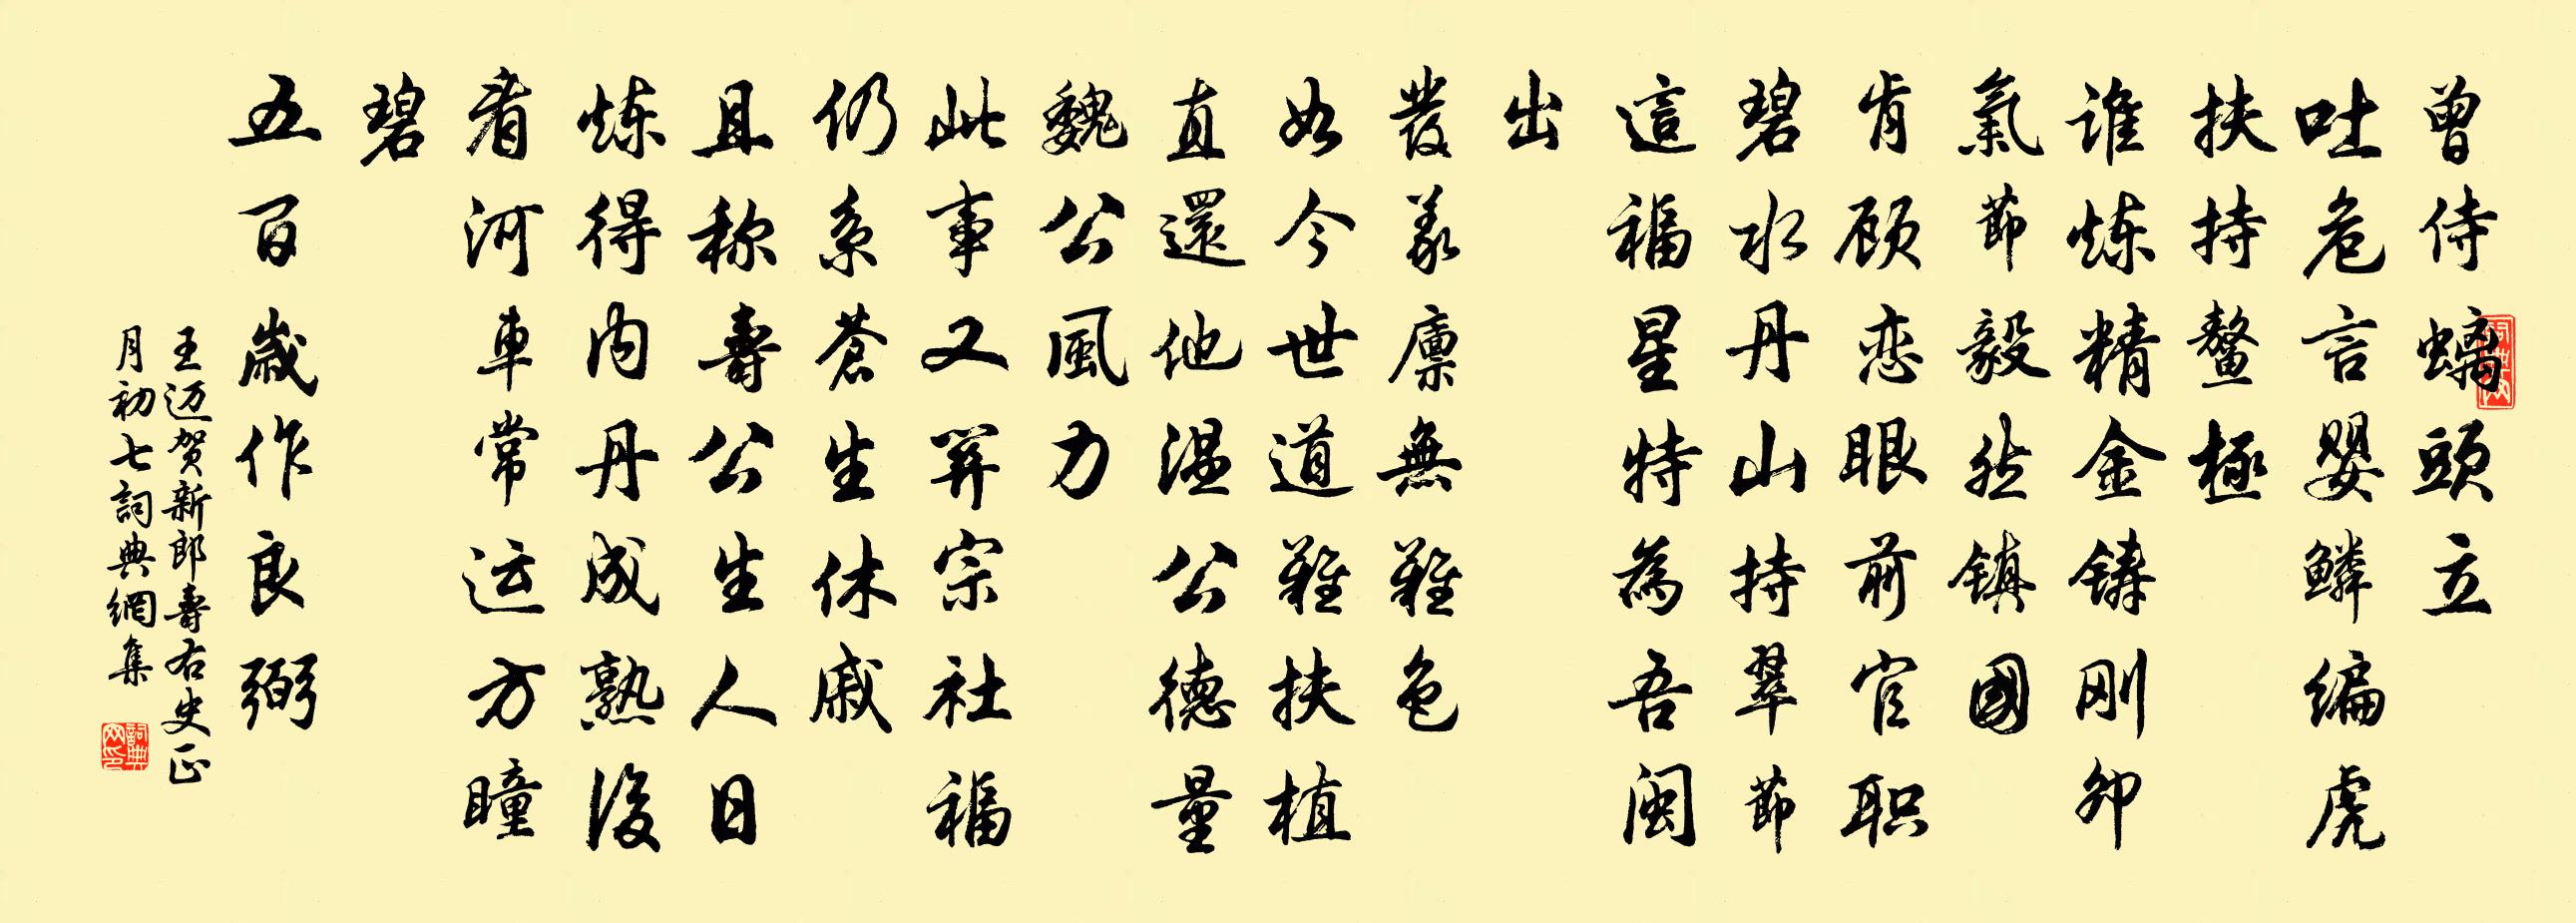 曾侍螭頭立
吐危言嬰鱗編虎
扶持鳌極
谁炼精金鑄刚卯
氣節毅然鎮國
肯顾恋眼前官职
碧水丹山持翠節
這福星特為吾閩
出
發義廪無難色
如今世道難扶植
直還他温公德量
魏公風力
此事又関宗社福
仍系蒼生休戚
且称壽公生人日
炼得内丹成熟後
看河車常运方瞳
碧
五百歲作良弼
王迈贺新郎壽右史正
月初七詞典網集